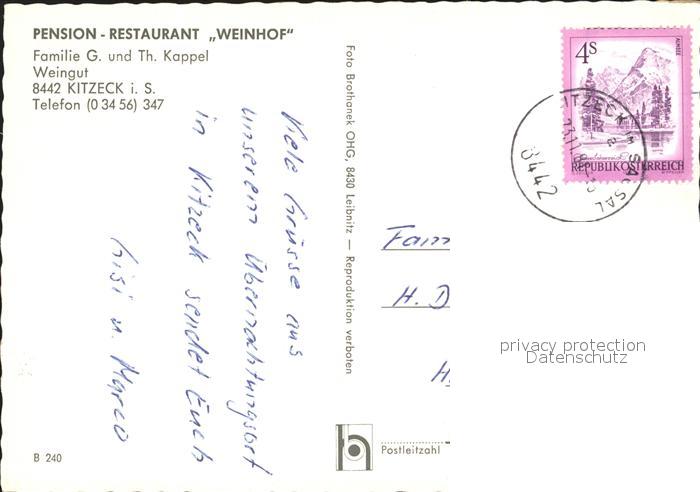 PENSION - RESTAURANT „WEINHOF“
Familie G. und Th. Kappel
Weingut
8442 KITZECK i. S.
Telefon (0 34 56) 347
Viele Grüsse aus
unserem Übernachtungsort
in Kitzeck sendet Euch
u. Marco
B 240
Foto Brothanek OHG, 8430 Leibnitz — Reproduktion verboten
4S
ALMSEE
REPUBLIK ÖSTERREICH
KITZECK im SAUSAL
8442
Fam
H. D
H.
privacy protection
Datenschutz
Postleitzahl